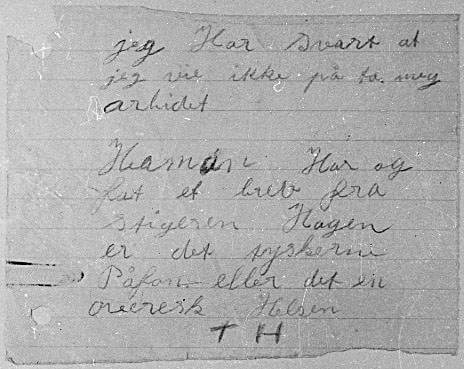 jeg Har svart at
jeg vie ikke på ta meg
arbidet
Haman Har og
fat et brev fra
stigeren Hagen
er det tyskerne
Påfan eller det en
Helsen
T H